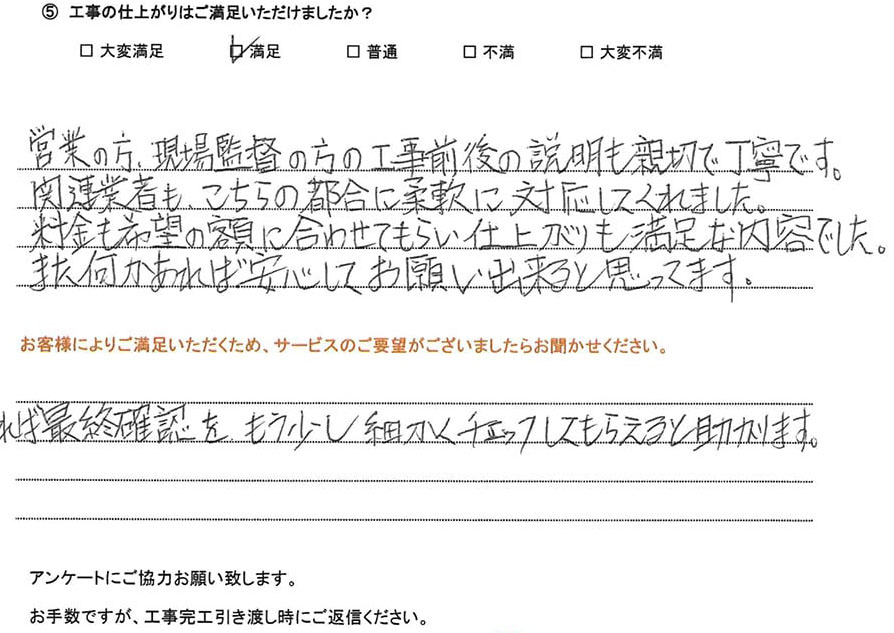 ⑤ 工事の仕上がりはご満足いただけましたか？
□ 大変満足 ☑ 満足 □ 普通 □ 不満 □ 大変不満
営業の方、現場監督の方の工事前後の説明も親切で丁寧です。
関連業者も、こちらの都合に柔軟に対応してくれました。
料金も希望の額に合わせてもらい仕上がりも満足な内容でした。
また何かあれば安心してお願い出来ると思ってます。
お客様によりご満足いただくため、サービスのご要望がございましたらお聞かせください。
れば最終確認を、もう少し細かくチェックしてもらえると助かります。
アンケートにご協力お願い致します。
お手数ですが、工事完工引き渡し時にご返信ください。